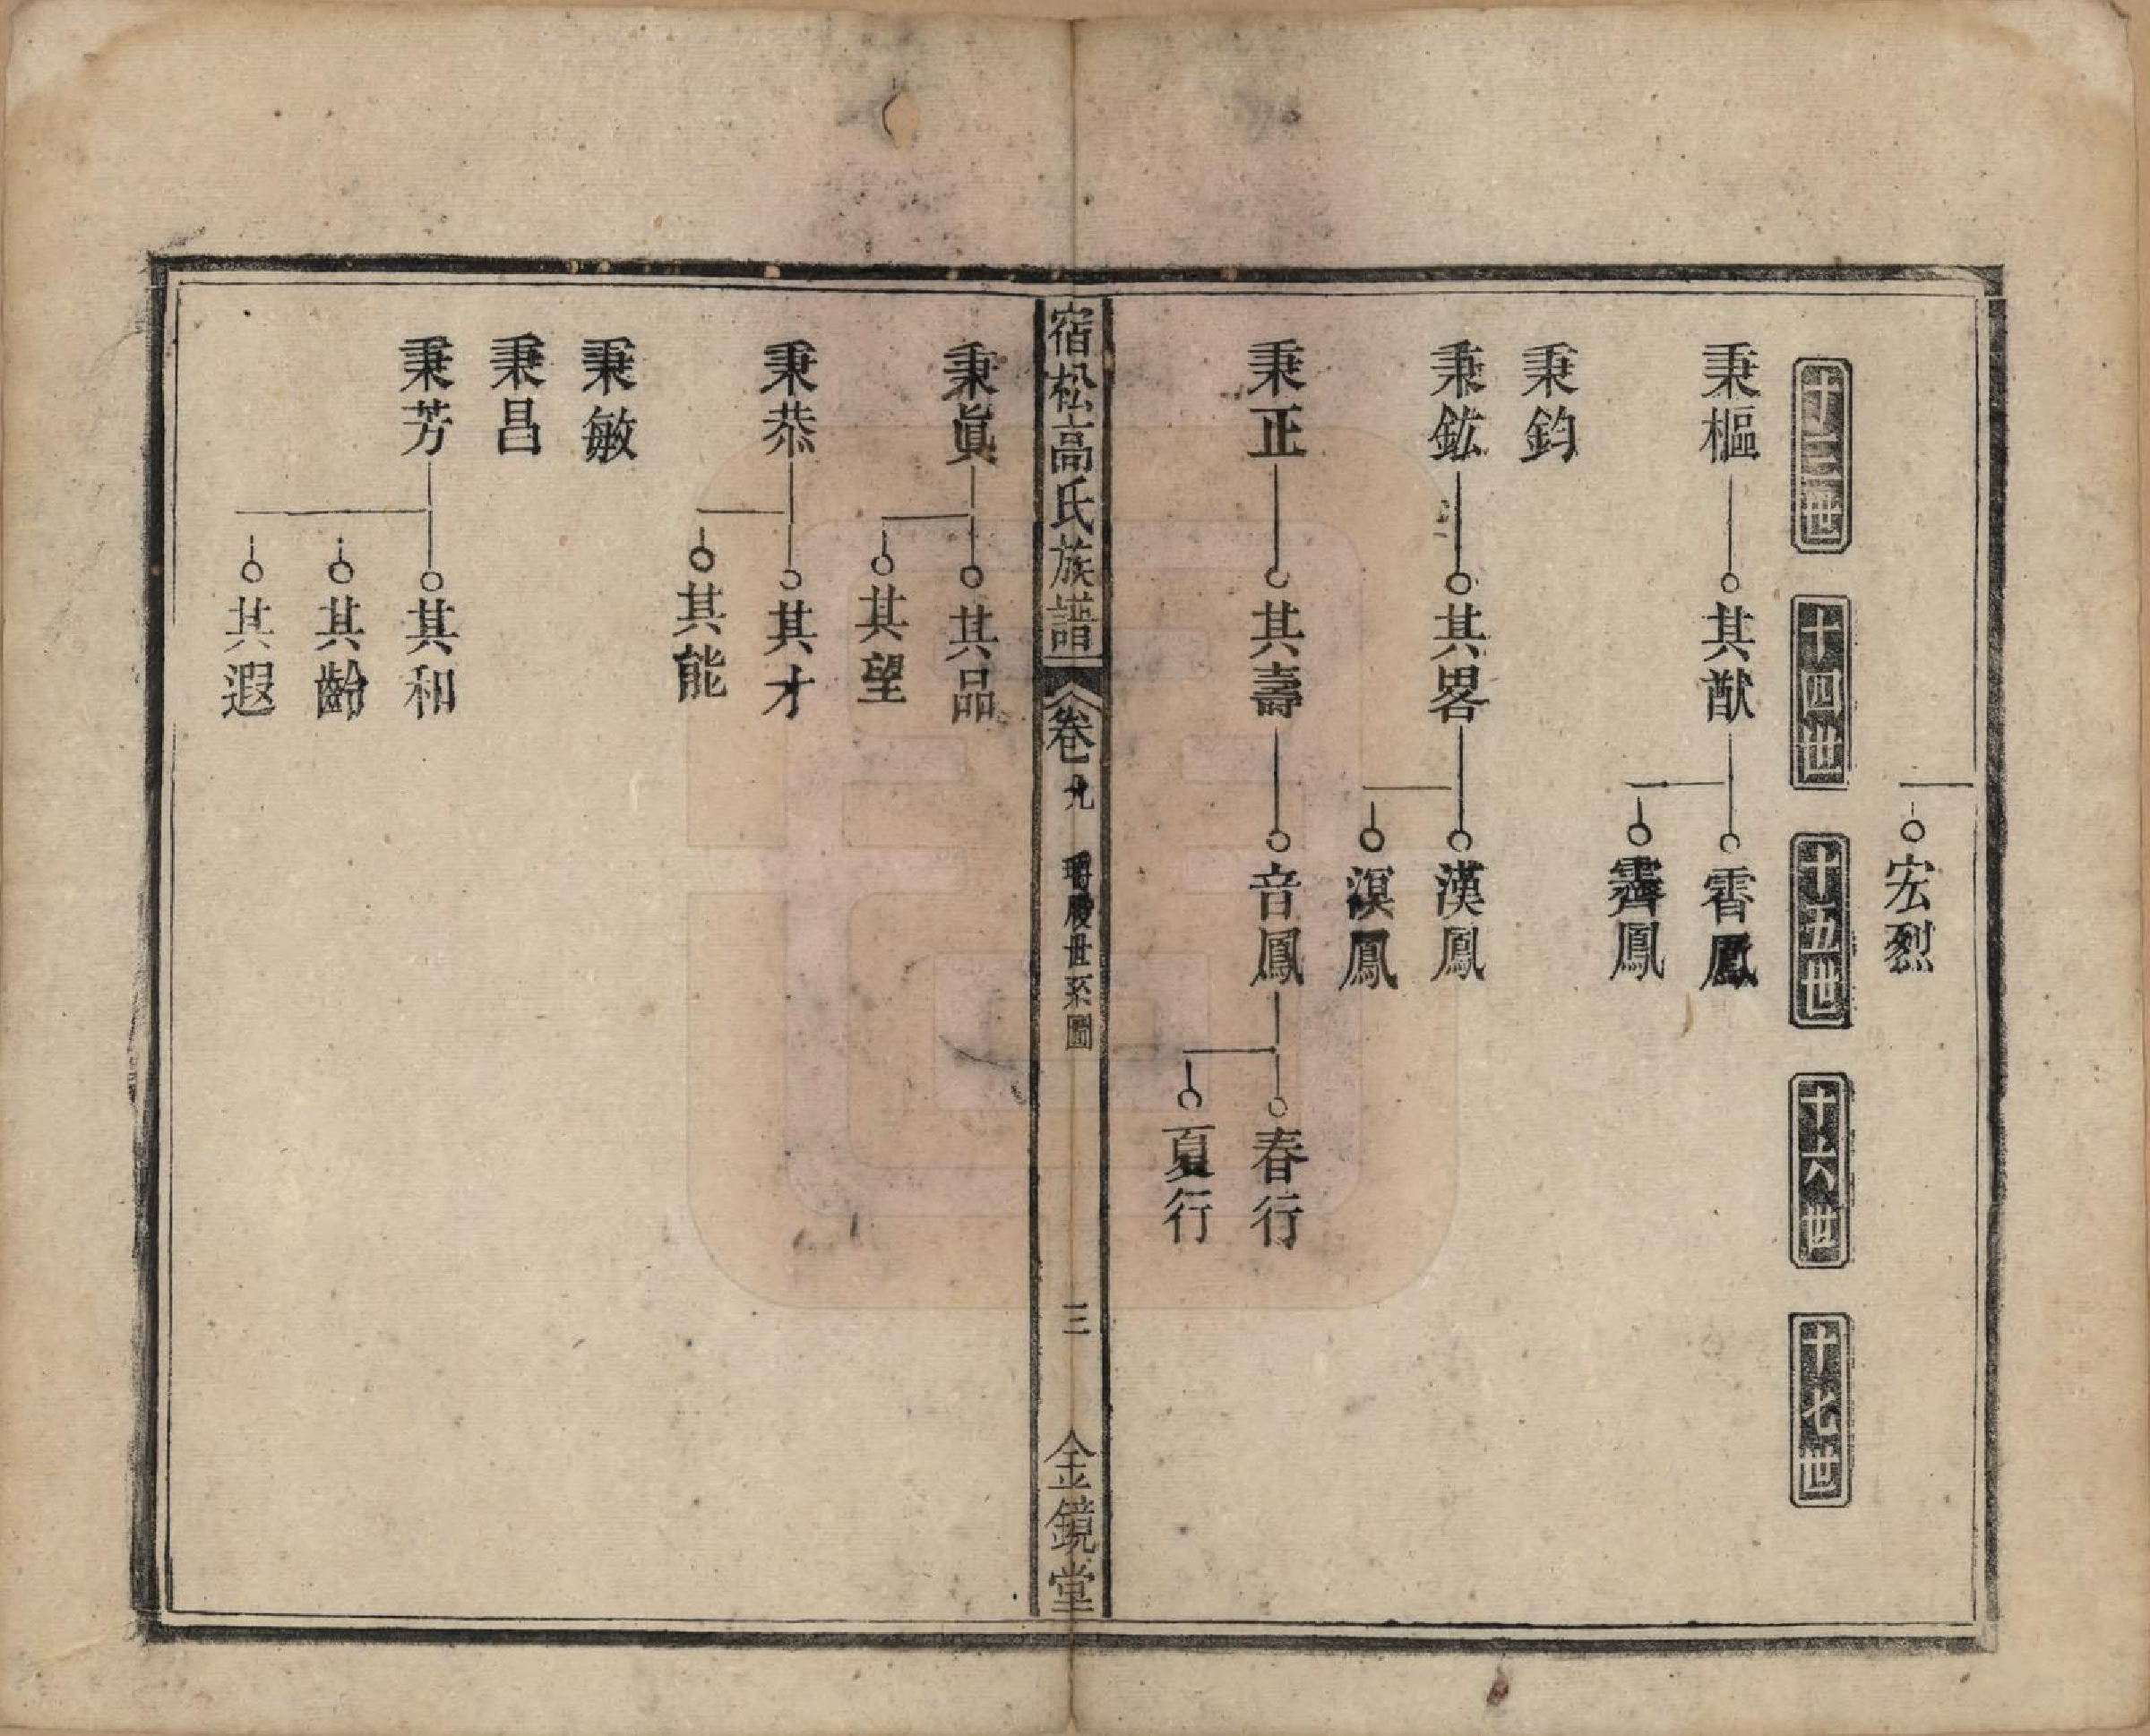 宏烈
十三世
十四世
十五世
十六世
十七世
秉樞
其猷
霅鳳
霽鳳
秉鈞
秉鈜
其畧
漢鳳
溟鳳
秉正
其壽
音鳳
春行
夏行
宿松高氏族譜
卷九
股世系圖
三
金鏡堂
秉眞
其品
其望
秉恭
其才
其能
秉敏
秉昌
秉芳
其和
其齡
其遐